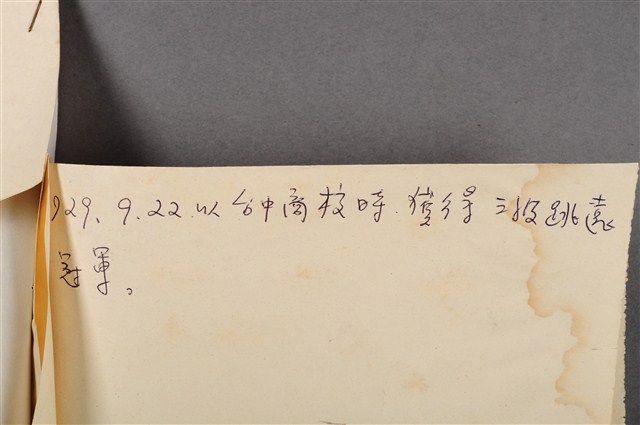 1929.9.22.以台中商校時.獲得三段跳遠
冠軍。